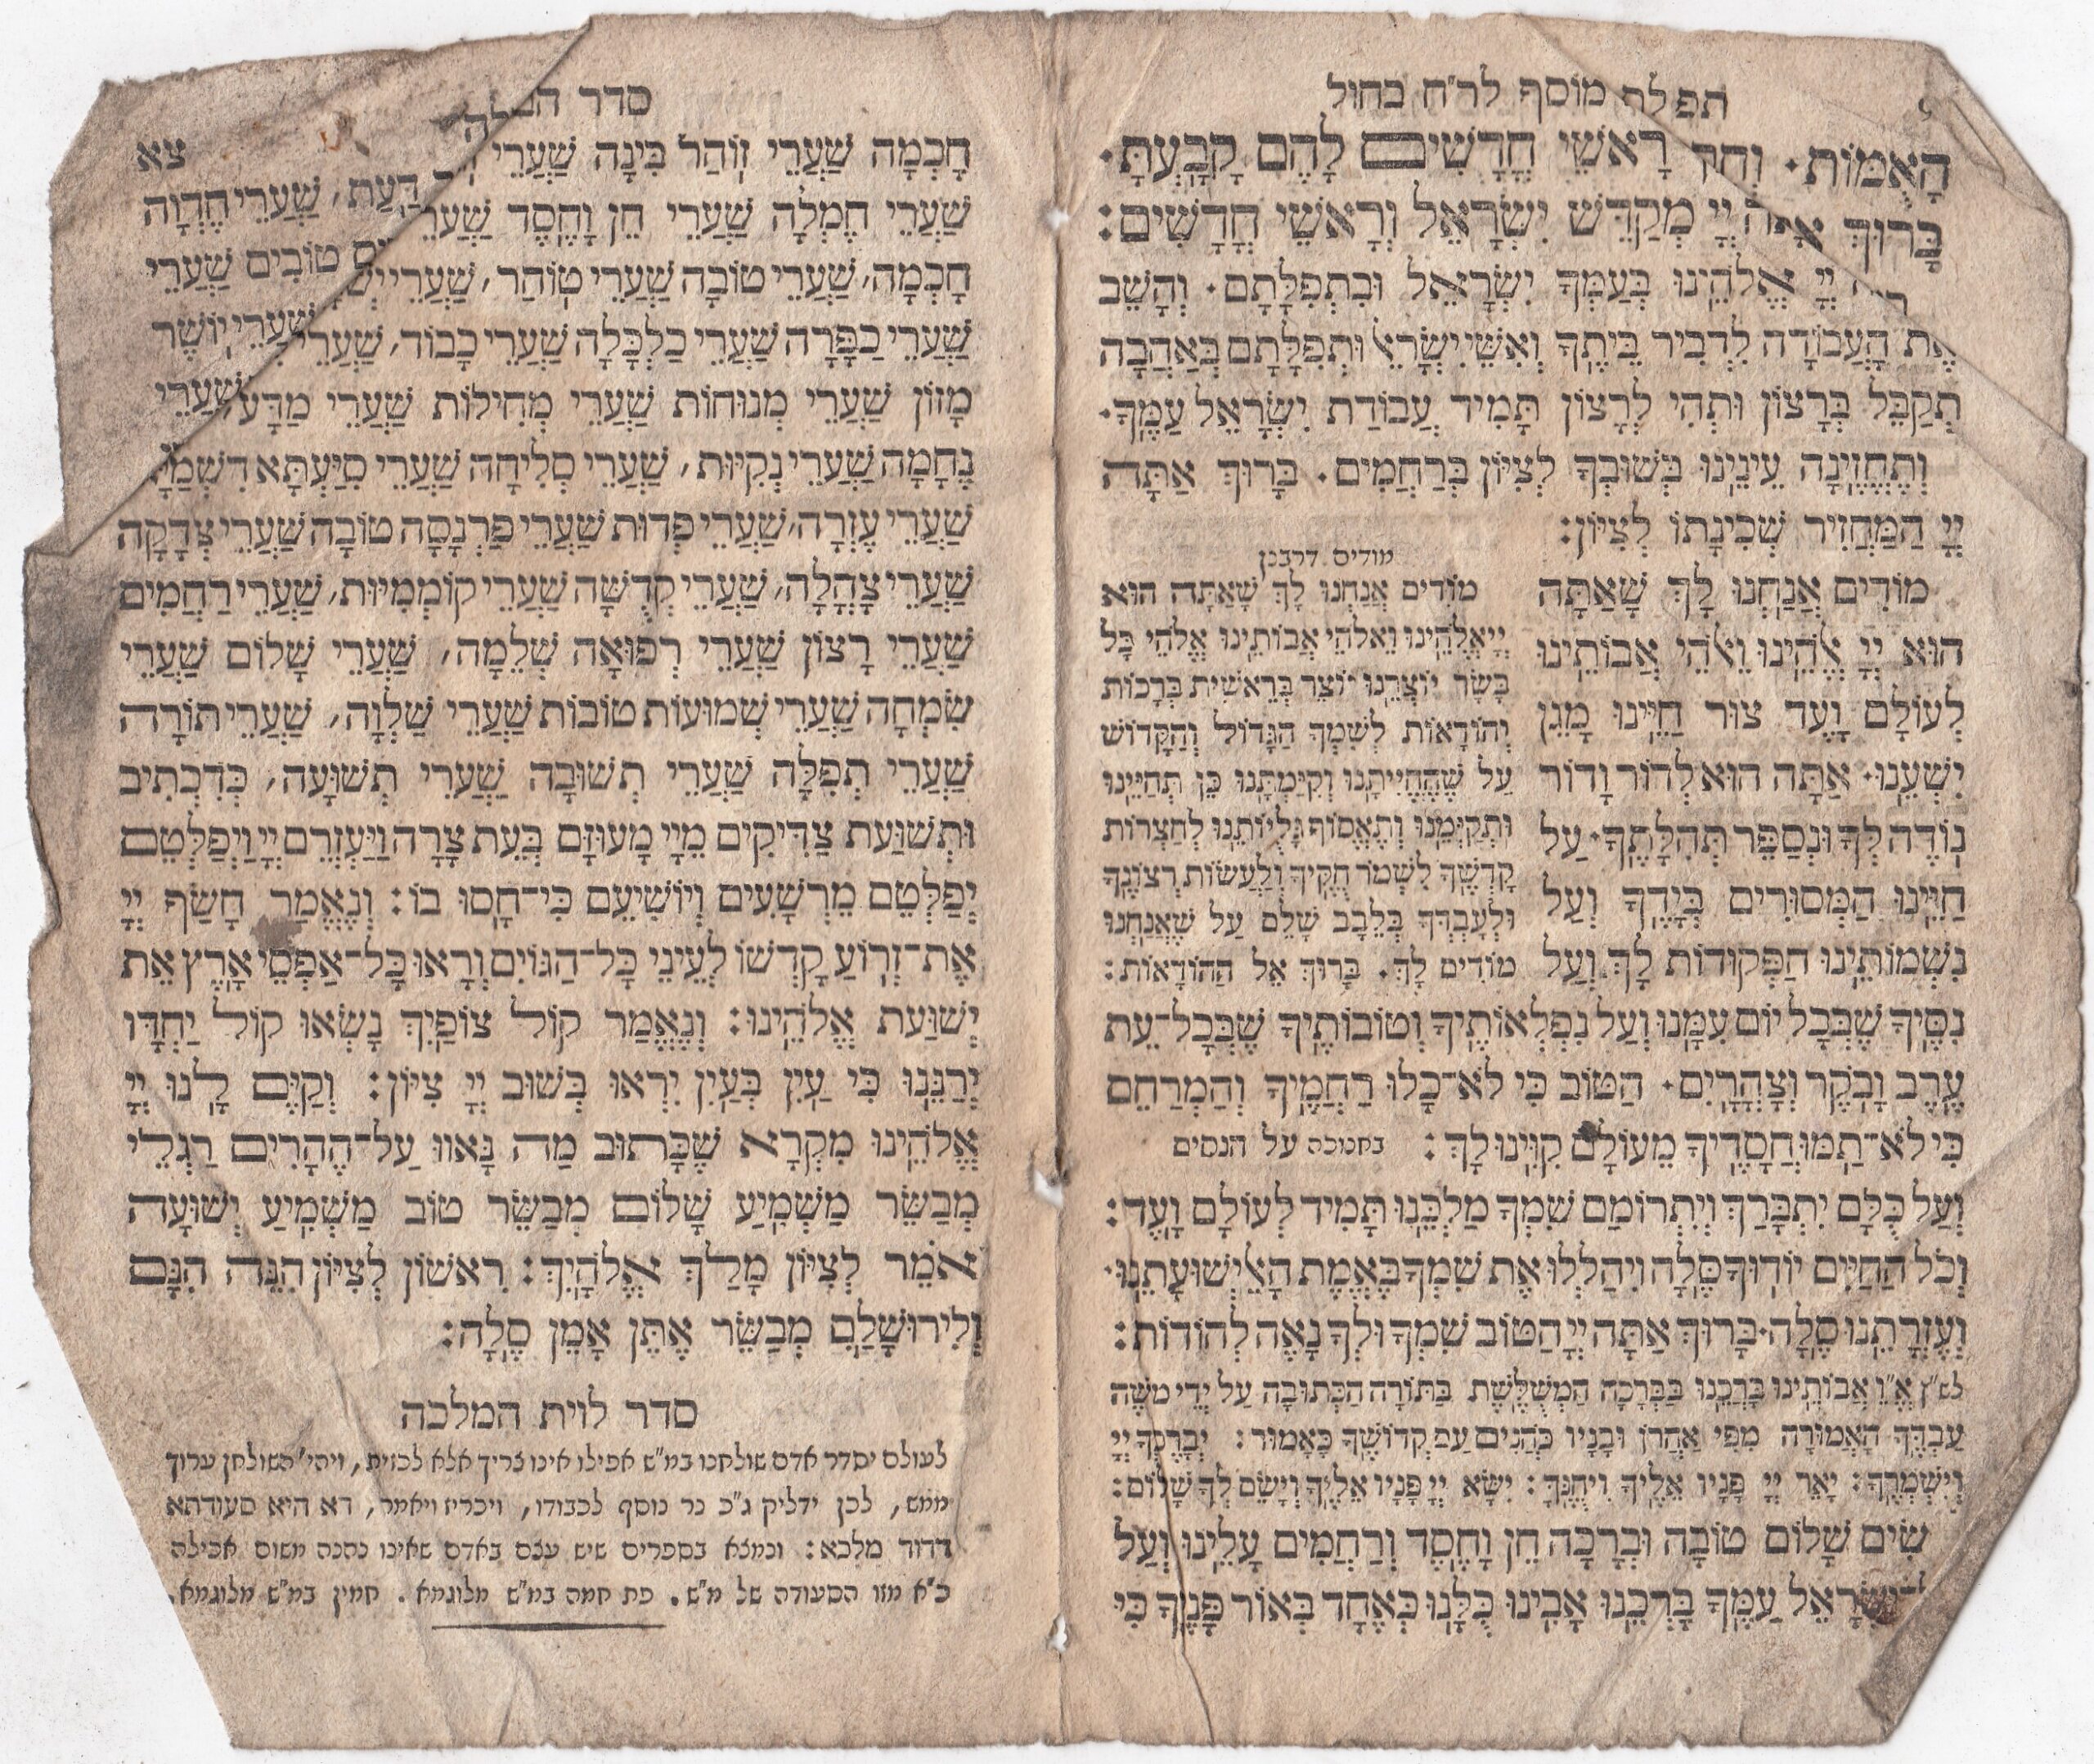 תפלת מוסף לר״ח בחול
הָאֻמּוֹת· רָאשֵׁי חֳדָשִׁים לָהֶם קָבָעְתָּ·
בָּרוּךְ אַתָּה יְיָ מְקַדֵּשׁ יִשְׂרָאֵל וְרָאשֵׁי חֳדָשִׁים:
יְיָ אֱלֹהֵינוּ בְּעַמְּךָ יִשְׂרָאֵל וּבִתְפִלָּתָם· וְהָשֵׁב
אֶת הָעֲבוֹדָה לִדְבִיר בֵּיתֶךָ וְאִשֵּׁי יִשְׂרָאֵל וּתְפִלָּתָם בְּאַהֲבָה
תְקַבֵּל בְּרָצוֹן וּתְהִי לְרָצוֹן תָּמִיד עֲבוֹדַת יִשְׂרָאֵל עַמֶּךָ·
וְתֶחֱזֶינָה עֵינֵינוּ בְּשׁוּבְךָ לְצִיּוֹן בְּרַחֲמִים· בָּרוּךְ אַתָּה
יְיָ הַמַּחֲזִיר שְׁכִינָתוֹ לְצִיּוֹן:
מוֹדִים אֲנַחְנוּ לָךְ שָׁאַתָּה
הוּא יְיָ אֱלֹהֵינוּ וֵאלֹהֵי אֲבוֹתֵינוּ
לְעוֹלָם וָעֶד צוּר חַיֵּינוּ מָגֵן
יִשְׁעֵנוּ· אַתָּה הוּא לְדוֹר וָדוֹר
נוֹדֶה לְּךָ וּנְסַפֵּר תְּהִלָּתֶךָ· עַל
חַיֵּינוּ הַמְּסוּרִים בְּיָדֶךָ וְעַל
נִשְׁמוֹתֵינוּ הַפְּקוּדוֹת לָךְ וְעַל
מודים דרבנן
מוֹדִים אֲנַחְנוּ לָךְ שָׁאַתָּה הוּא
יְיָ אֱלֹהֵינוּ וֵאלֹהֵי אֲבוֹתֵינוּ אֱלֹהֵי כָּל
בָּשָׂר יוֹצְרֵנוּ יוֹצֵר בְּרֵאשִׁית בְּרָכוֹת
וְהוֹדָאוֹת לְשִׁמְךָ הַגָּדוֹל וְהַקָּדוֹשׁ
עַל שֶׁהֶחֱיִיתָנוּ וְקִיַּמְתָּנוּ כֵּן תְּחַיֵּינוּ
וּתְקַיְּמֵנוּ וְתֶאֱסוֹף גָּלֻיּוֹתֵנוּ לְחַצְרוֹת
קָדְשֶׁךָ לִשְׁמֹר חֻקֶּיךָ וְלַעֲשׂוֹת רְצוֹנֶךָ
וּלְעָבְדְּךָ בְּלֵבָב שָׁלֵם עַל שֶׁאֲנַחְנוּ
מוֹדִים לָךְ· בָּרוּךְ אֵל הַהוֹדָאוֹת:
נִסֶּיךָ שֶׁבְּכָל יוֹם עִמָּנוּ וְעַל נִפְלְאוֹתֶיךָ וְטוֹבוֹתֶיךָ שֶׁבְּכָל־עֵת
עֶרֶב וָבֹקֶר וְצָהֳרָיִם· הַטּוֹב כִּי לֹא־כָלוּ רַחֲמֶיךָ וְהַמְרַחֵם
כִּי לֹא־תַמּוּ חֲסָדֶיךָ מֵעוֹלָם קִוִּינוּ לָךְ: בחנוכה על הנסים
וְעַל כֻּלָּם יִתְבָּרַךְ וְיִתְרוֹמַם שִׁמְךָ מַלְכֵּנוּ תָּמִיד לְעוֹלָם וָעֶד:
וְכֹל הַחַיִּים יוֹדוּךָ סֶּלָה וִיהַלְלוּ אֶת שִׁמְךָ בֶּאֱמֶת הָאֵל יְשׁוּעָתֵנוּ·
וְעֶזְרָתֵנוּ סֶלָה· בָּרוּךְ אַתָּה יְיָ הַטּוֹב שִׁמְךָ וּלְךָ נָאֶה לְהוֹדוֹת:
לש״ץ אֱ״וֵ אֲבוֹתֵינוּ בָּרְכֵנוּ בַּבְּרָכָה הַמְשֻׁלֶּשֶׁת בַּתּוֹרָה הַכְּתוּבָה עַל יְדֵי משֶׁה
עַבְדֶּךָ הָאֲמוּרָה מִפִּי אַהֲרֹן וּבָנָיו כֹּהֲנִים עַם קְדוֹשֶׁךָ כָּאָמוּר: יְבָרֶכְךָ יְיָ
וְיִשְׁמְרֶךָ: יָאֵר יְיָ פָּנָיו אֵלֶיךָ וִיחֻנֶּךָּ: יִשָּׂא יְיָ פָּנָיו אֵלֶיךָ וְיָשֵׂם לְךָ שָׁלוֹם:
שִׂים שָׁלוֹם טוֹבָה וּבְרָכָה חֵן וָחֶסֶד וְרַחֲמִים עָלֵינוּ וְעַל
יִשְׂרָאֵל עַמֶּךָ בָּרְכֵנוּ אָבִינוּ כֻּלָּנוּ כְּאֶחָד בְּאוֹר פָּנֶיךָ כִּי
סדר
צא
חָכְמָה שַׁעֲרֵי זוֹהַר בִּינָה שַׁעֲרֵי דַּעַת, שַׁעֲרֵי חֶדְוָה
שַׁעֲרֵי חֶמְלָה שַׁעֲרֵי חֵן וָחֶסֶד שַׁעֲרֵי טוֹבִים שַׁעֲרֵי
חָכְמָה, שַׁעֲרֵי טוֹבָה שַׁעֲרֵי טוֹהַר, שַׁעֲרֵי שַׁעֲרֵי יוֹשֶׁר
שַׁעֲרֵי כַפָּרָה שַׁעֲרֵי כַלְכָּלָה שַׁעֲרֵי כָבוֹד, שַׁעֲרֵי שַׁעֲרֵי
מָזוֹן שַׁעֲרֵי מְנוּחוֹת שַׁעֲרֵי מְחִילוֹת שַׁעֲרֵי מַדָּע,
נֶחָמָה שַׁעֲרֵי נְקִיּוּת, שַׁעֲרֵי סְלִיחָה שַׁעֲרֵי סִיַּעְתָּא דִשְׁמַיָּא
שַׁעֲרֵי עֶזְרָה, שַׁעֲרֵי פְדוּת שַׁעֲרֵי פַרְנָסָה טוֹבָה שַׁעֲרֵי צְדָקָה
שַׁעֲרֵי צָהֳלָה, שַׁעֲרֵי קְדֻשָּׁה שַׁעֲרֵי קוֹמְמִיּוּת, שַׁעֲרֵי רַחֲמִים
שַׁעֲרֵי רָצוֹן שַׁעֲרֵי רְפוּאָה שְׁלֵמָה, שַׁעֲרֵי שָׁלוֹם שַׁעֲרֵי
שִׂמְחָה שַׁעֲרֵי שְׁמוּעוֹת טוֹבוֹת שַׁעֲרֵי שַׁלְוָה, שַׁעֲרֵי תוֹרָה
שַׁעֲרֵי תְפִלָּה שַׁעֲרֵי תְשׁוּבָה שַׁעֲרֵי תְשׁוּעָה, כְּדִכְתִיב
וּתְשׁוּעַת צַדִּיקִים מֵיְיָ מָעוּזָּם בְּעֵת צָרָה וַיַּעְזְרֵם יְיָ וַיְפַלְּטֵם
יְפַלְּטֵם מֵרְשָׁעִים וְיוֹשִׁיעֵם כִּי־חָסוּ בוֹ: וְנֶאֱמַר חָשַׂף יְיָ
אֶת־זְרוֹעַ קָדְשׁוֹ לְעֵינֵי כָּל־הַגּוֹיִם וְרָאוּ כָּל־אַפְסֵי אָרֶץ אֵת
יְשׁוּעַת אֱלֹהֵינוּ: וְנֶאֱמַר קוֹל צוֹפַיִךְ נָשְׂאוּ קוֹל יַחְדָּו
יְרַנֵּנוּ כִּי עַיִן בְּעַיִן יִרְאוּ בְּשׁוּב יְיָ צִיּוֹן: וְקַיֶּם לָנוּ יְיָ
אֱלֹהֵינוּ מִקְרָא שֶׁכָּתוּב מַה נָּאווּ עַל־הֶהָרִים רַגְלֵי
מְבַשֵּׂר מַשְׁמִיעַ שָׁלוֹם מְבַשֵּׂר טוֹב מַשְׁמִיעַ יְשׁוּעָה
אֹמֵר לְצִיּוֹן מָלַךְ אֱלֹהָיִךְ: רִאשׁוֹן לְצִיּוֹן הִנֵּה הִנָּם
וְלִירוּשָׁלַםִ מְבַשֵּׂר אֶתֵּן אָמֵן סֶלָה:
סדר לוית המלכה
לעולם יסדר אדם שולחנו במ״ש אפילו אינו צריך אלא לכזית, ויהי׳ השולחן ערוך
ממש, לכן ידליק ג״כ נר נוסף לכבודו, ויכריז ויאמר, דא היא סעודתא
דדוד מלכא: ונמצא בספרים שיש עצם באדם שאינו נהנה משום אכילה
כ״א מזו הסעודה של מ״ש. פת חמה במ״ש מלוגמא. חמין במ״ש מלוגמא.